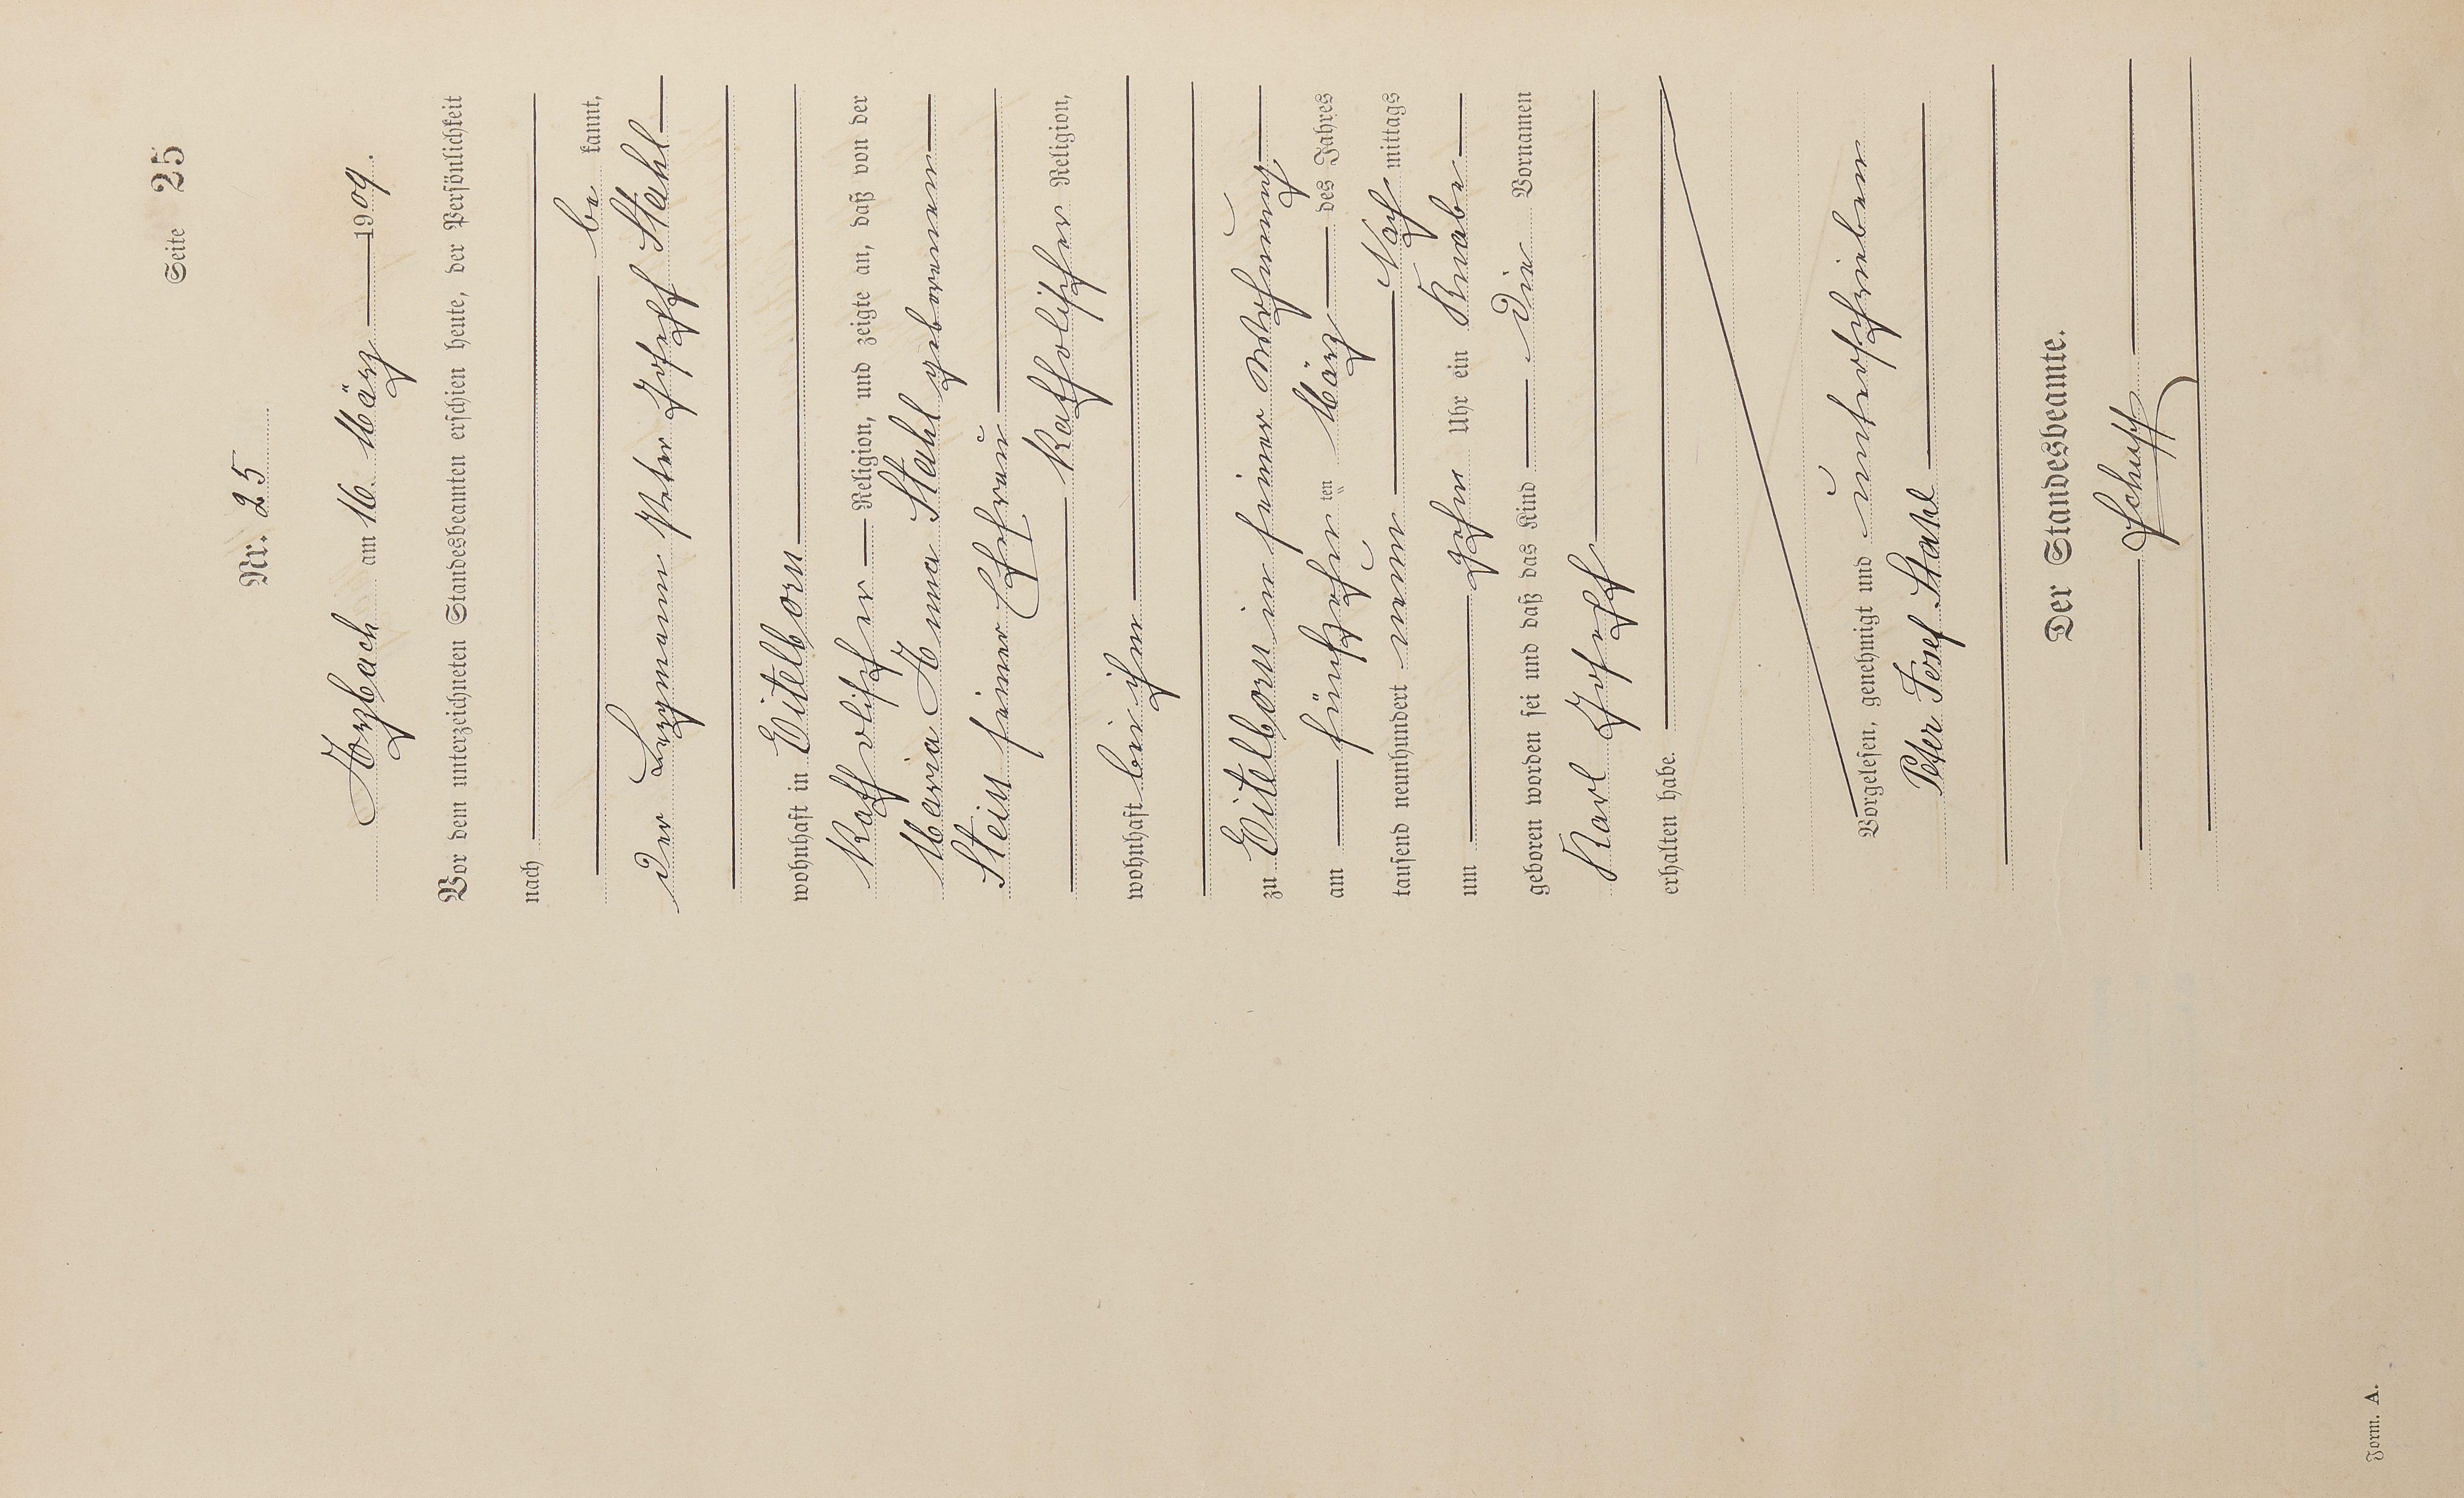 Seite 25
Nr. 25
Arzbach am 16. März 1909.
Vor dem unterzeichneten Standesbeamten erschien heute, der Persönlichkeit
nach
be kannt,
der Bergmann Peter Joseph Stahl
wohnhaft in Eitelborn
katholischer Religion, und zeigte an, daß von der
Maria Anna Stahl geborenen
Stein seiner Ehefrau
katholischer Religion,
wohnhaft bei ihm
zu Eitelborn in seiner Wohnung
am fünfzehn ten März des Jahres
tausend neunhundert neun Nach mittags
um zehn Uhr ein Knabe
geboren worden sei und daß das Kind die Vornamen
Karl Joseph
erhalten habe.
Vorgelesen, genehmigt und unterschrieben
Peter Josef Stahl
Der Standesbeamte.
Schupp
Form. A.